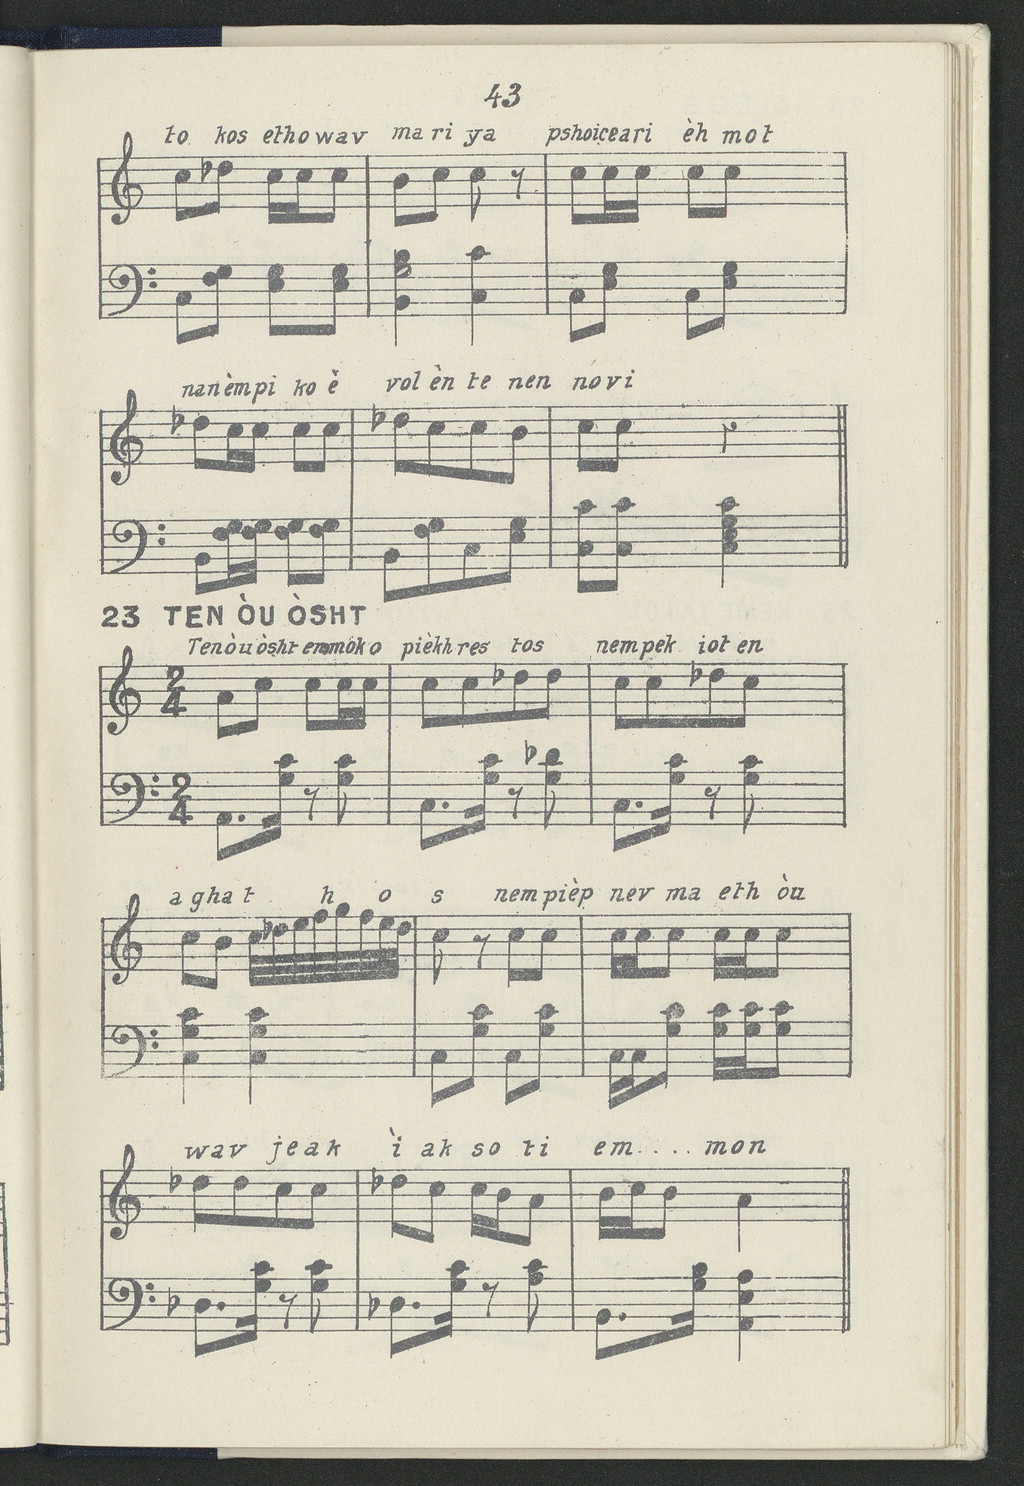 43
to kos ethowav ma ri ya pshoiceari èh mot
nanèmpi ko è vol èn te nen novi
23 TEN ÒU ÒSHT
Tenòuòsht emmòko pièkh res tos nempek ioten
2 4
2 4
aghat h o s nempièp nev ma eth òu
wav jeak ì ak so ti em.... mon